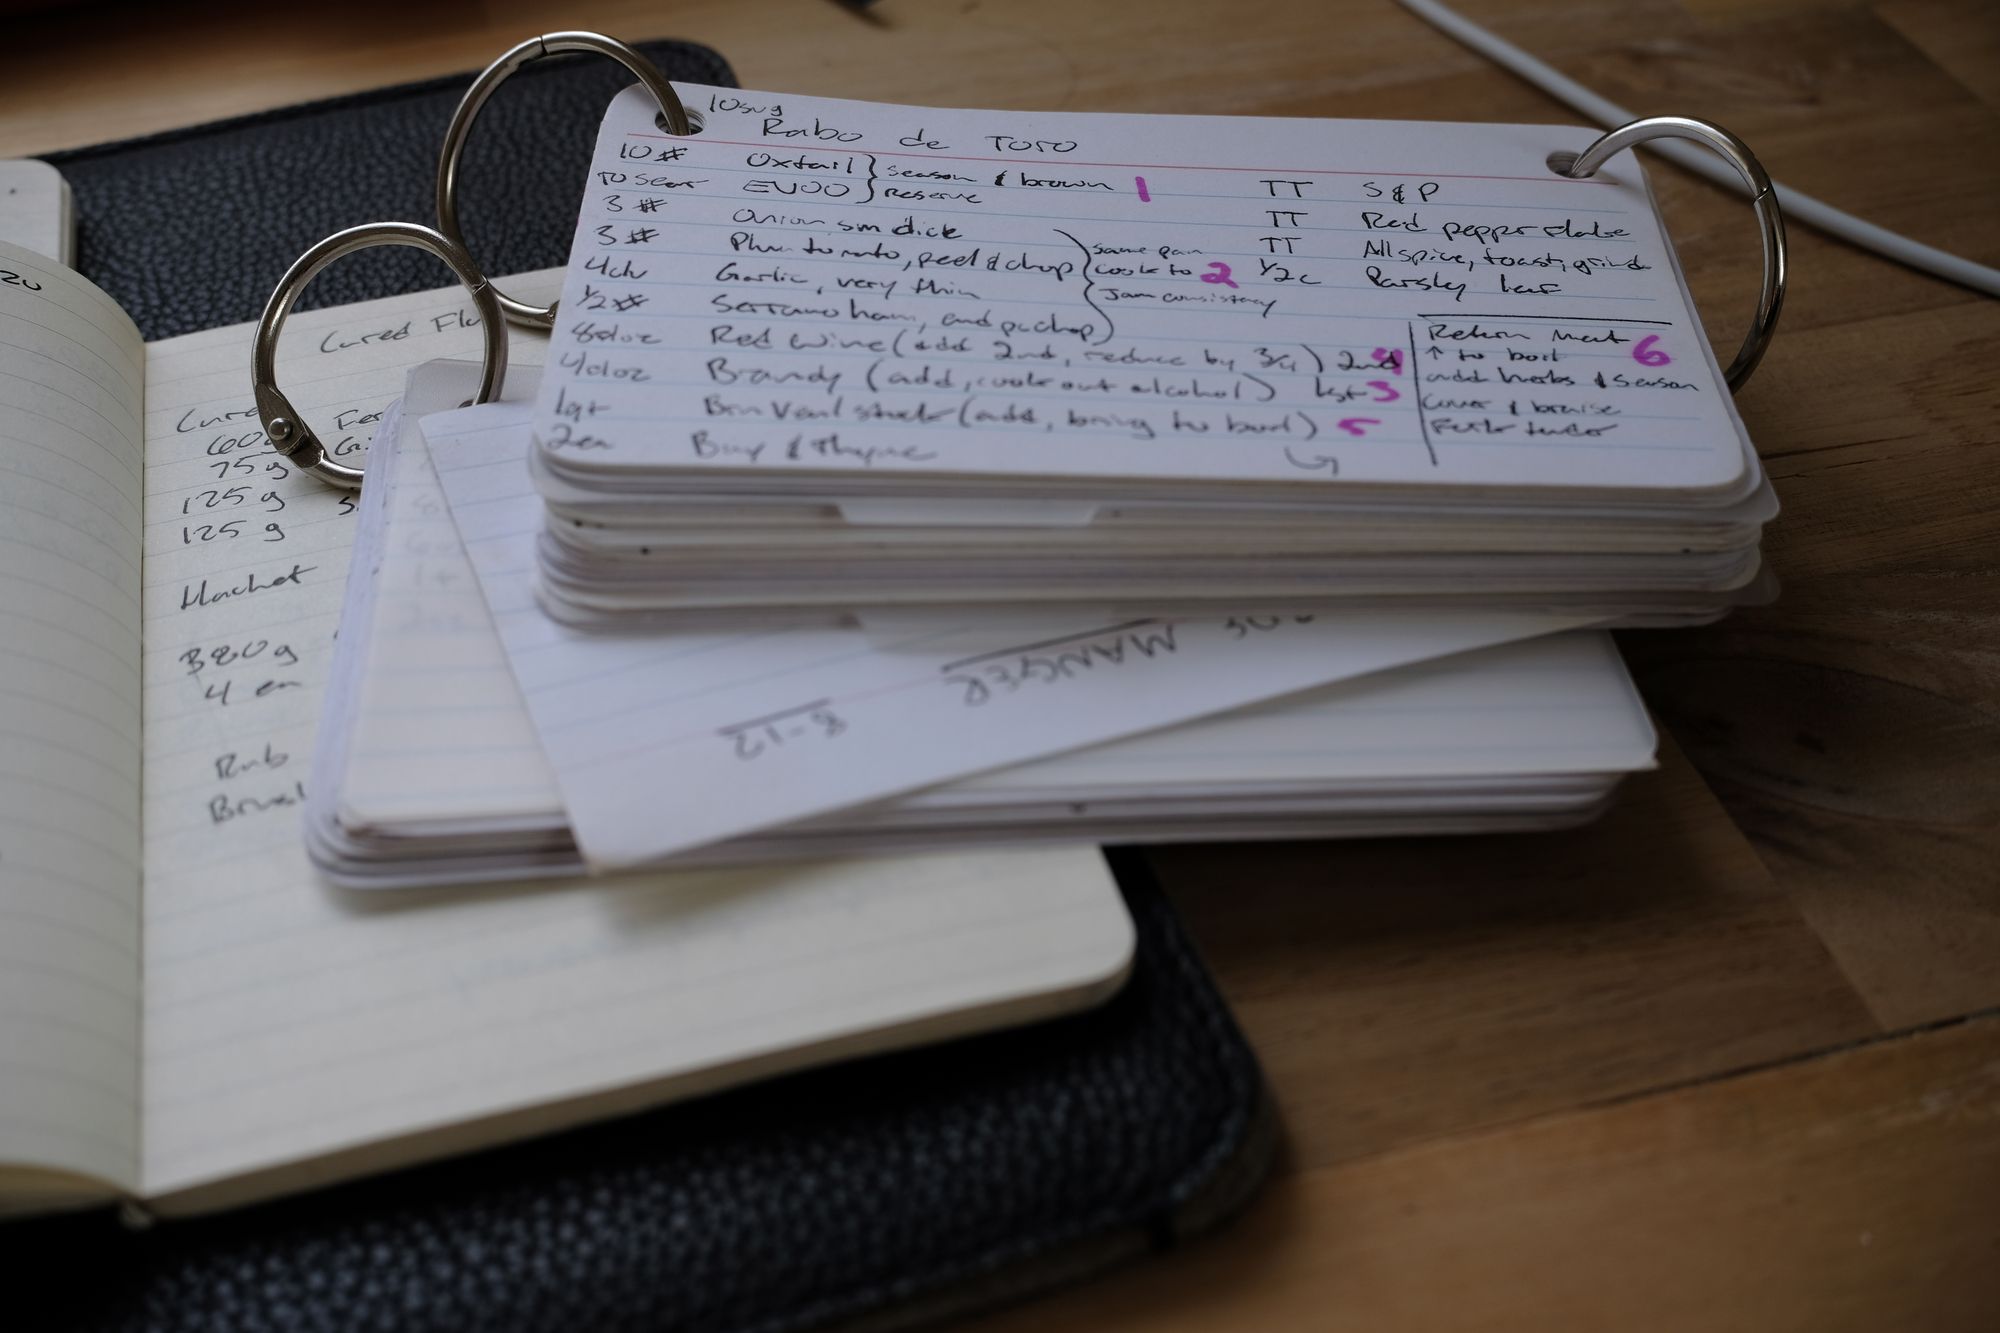 10svg
Rabo de Toro
10# Oxtail } season & brown 1
to sear EVOO } Reserve
3# Onion, sm dice
3# Plum tomato, peel & chop
4clv Garlic, very thin
1/2# Serrano ham, and pc chop
same pan
cook to 2
Jam consistency
8oz Red Wine (add 2nd, reduce by 3/4) 2nd 4
4oz Brandy (add, cook out alcohol) 1st 3
1qt Brn Veal stock (add, bring to boil) 5
2ea Bay & Thyme
TT S & P
TT Red pepper flake
TT Allspice, toast, grind
1/2c Parsley leaf
Return meat 6
↑ to boil
add herbs & season
cover & braise
Fork tender
MANGER
8-12
Cured
60g
75g
125g
125g
Hachet
380g
4 ea
Rub
20